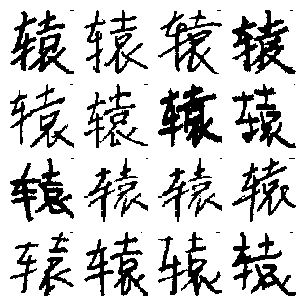 辕辕辕辕
辕辕辕辕
辕辕辕辕
辕辕辕辕